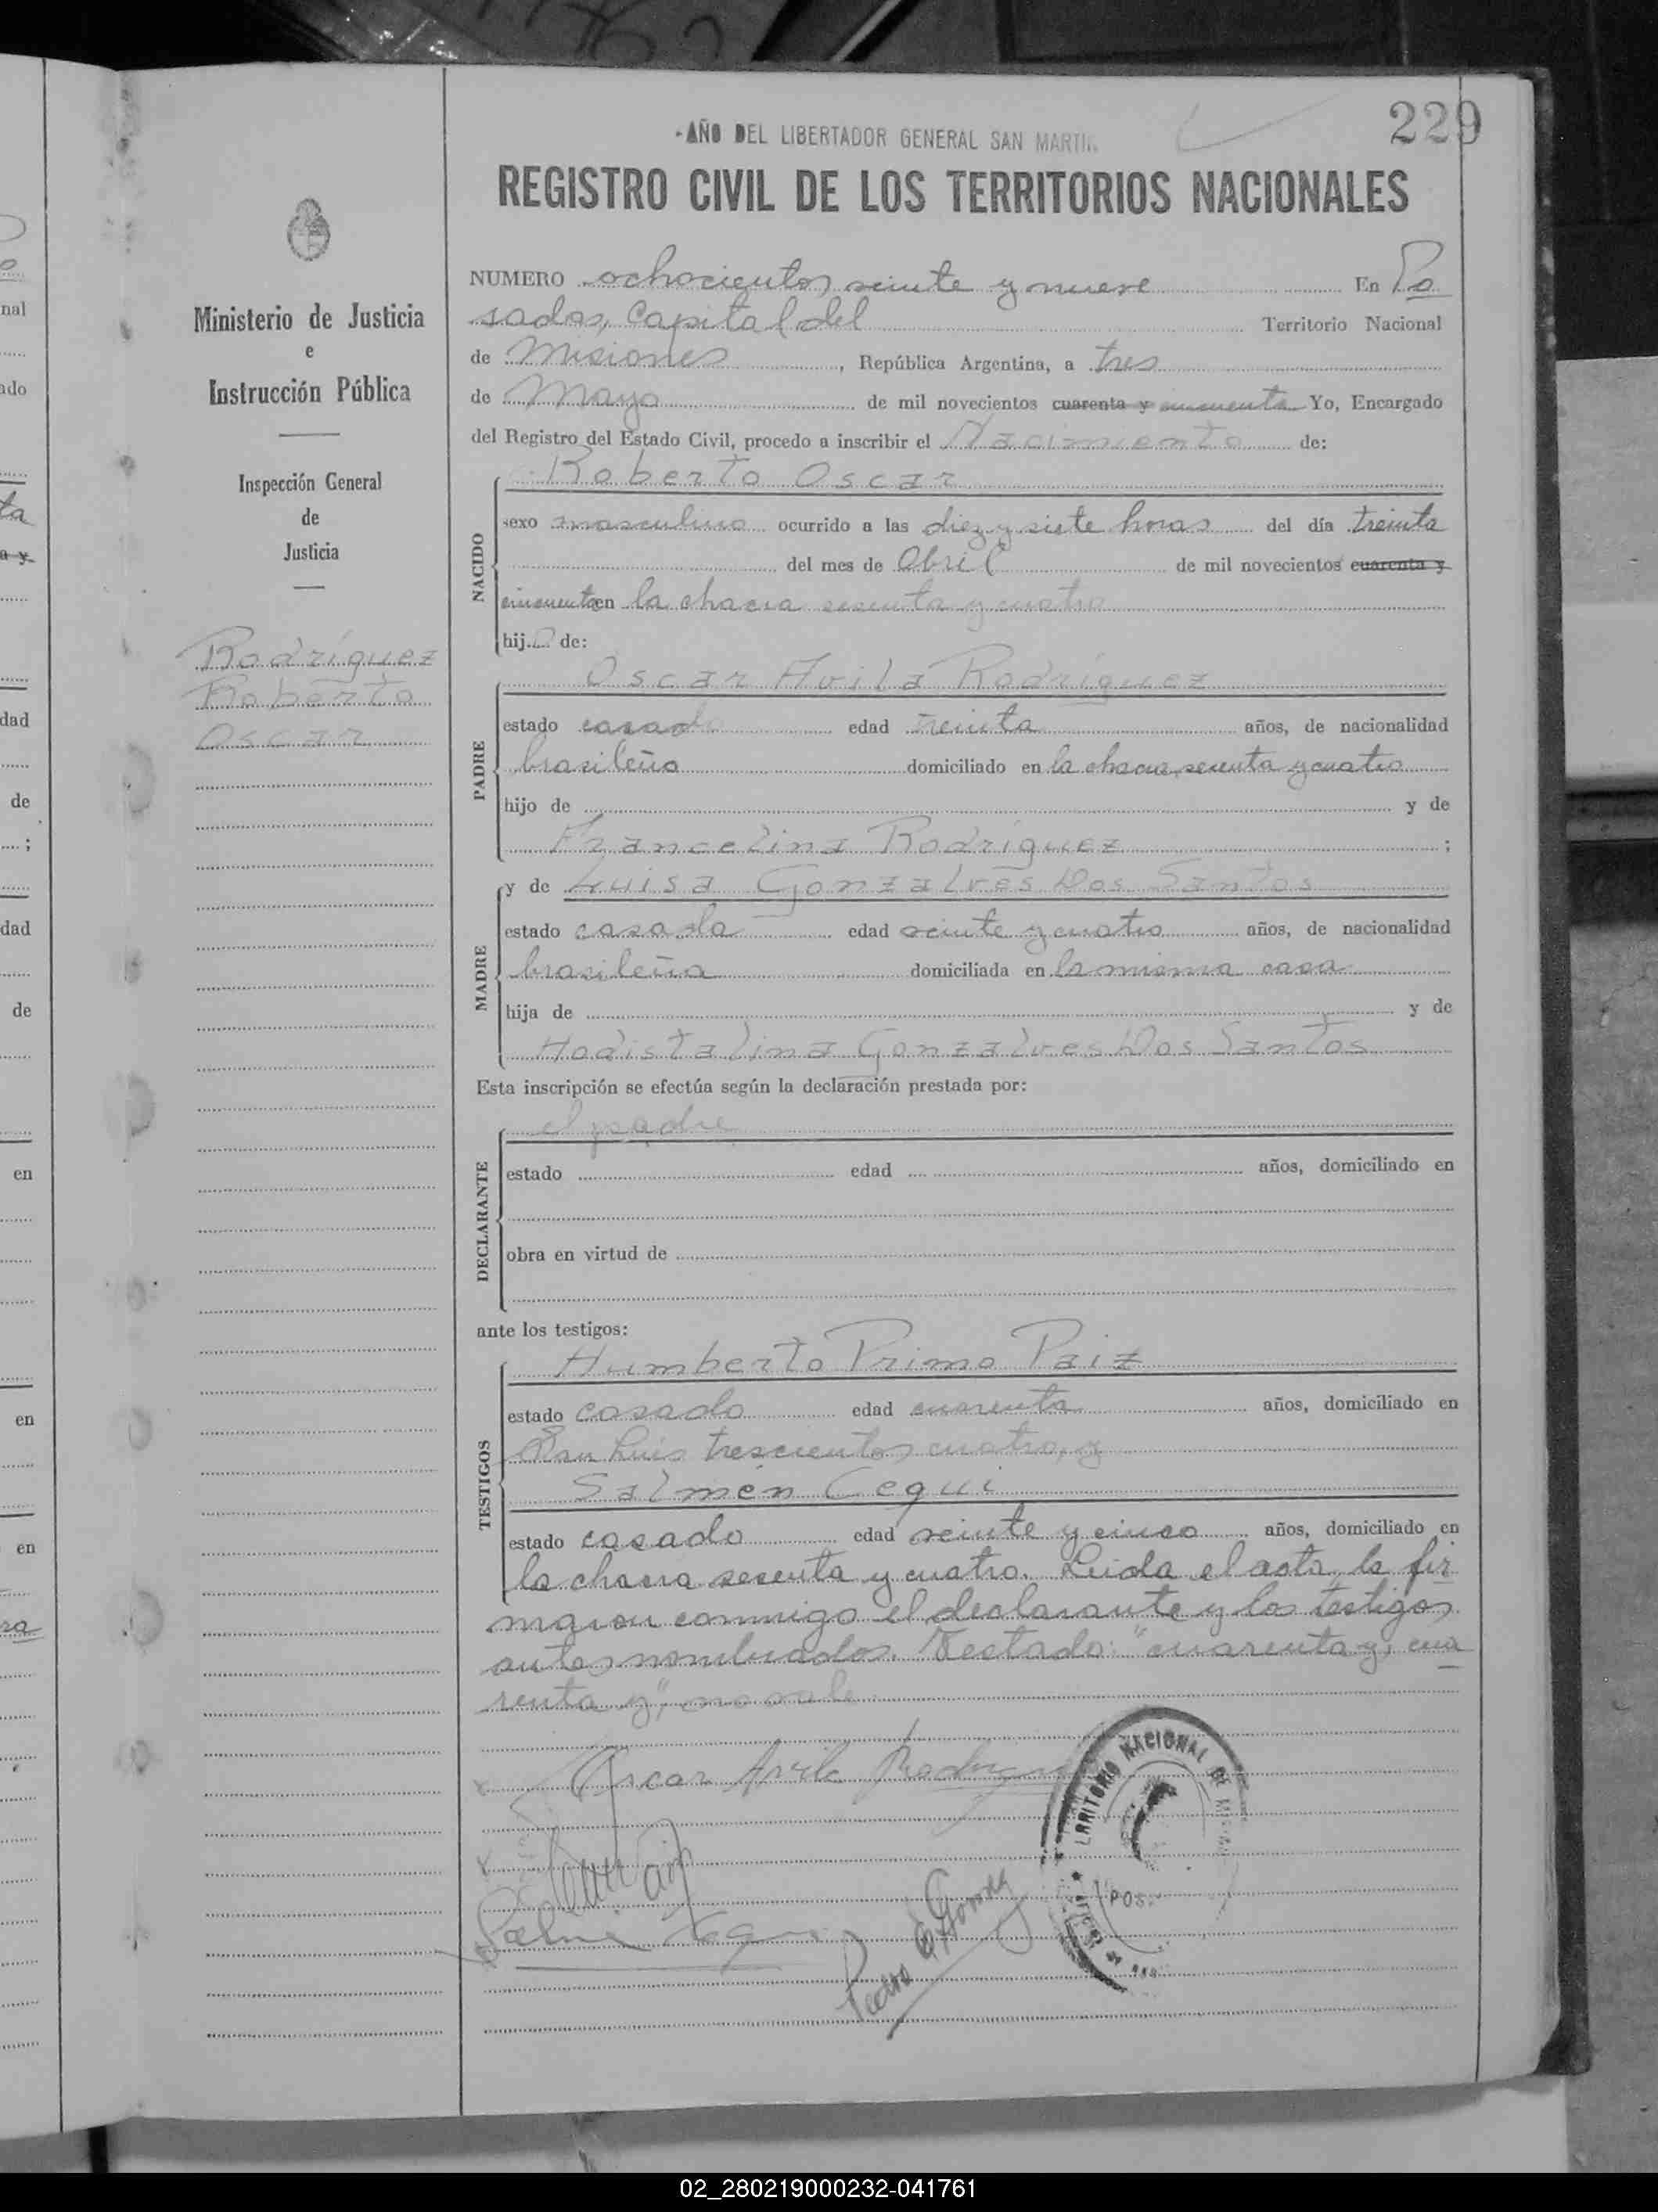 229
AÑO DEL LIBERTADOR GENERAL SAN MARTIN
REGISTRO CIVIL DE LOS TERRITORIOS NACIONALES
Ministerio de Justicia
e
Instrucción Pública
Inspección General
de
Justicia
Rodríguez
Roberto
Oscar
NUMERO ochocientos veinte y nueve En Po
sadas, Capital del Territorio Nacional
de Misiones, República Argentina, a tres
de Mayo de mil novecientos cuarenta y cincuenta Yo, Encargado
del Registro del Estado Civil, procedo a inscribir el Nacimiento de:
NACIDO
Roberto Oscar
sexo masculino ocurrido a las diez y siete horas del día treinta
del mes de Abril de mil novecientos cuarenta y
cincuenta en la chacra sesenta y cuatro
hijo de:
PADRE
Oscar Avila Rodríguez
estado casado edad treinta años, de nacionalidad
brasileña domiciliado en la chacra sesenta y cuatro
hijo de y de
Francelina Rodríguez ;
MADRE
y de Luisa Gonzalves Dos Santos
estado casada edad veinte y cuatro años, de nacionalidad
brasileña domiciliada en la misma casa
hija de y de
Hodistalina Gonzalves Dos Santos
Esta inscripción se efectúa según la declaración prestada por:
DECLARANTE
el padre
estado edad años, domiciliado en
obra en virtud de
ante los testigos:
TESTIGOS
Humberto Primo Paiz
estado casado edad cuarenta años, domiciliado en
San Luis trescientos cuatro, y
Salmén Cequi
estado casado edad veinte y cinco años, domiciliado en
la chacra sesenta y cuatro. Leida el acta, la fir
maron conmigo el declarante y los testigos
antes nombrados. Testado: "cuarenta y, cua
renta y", no vale
Oscar Avila Rodriguez
TERRITORIO NACIONAL DE
POS
Pedro G. Gomez
nal
ado
ta
a y
dad
de
;
dad
de
en
en
en
ra
02_280219000232-041761